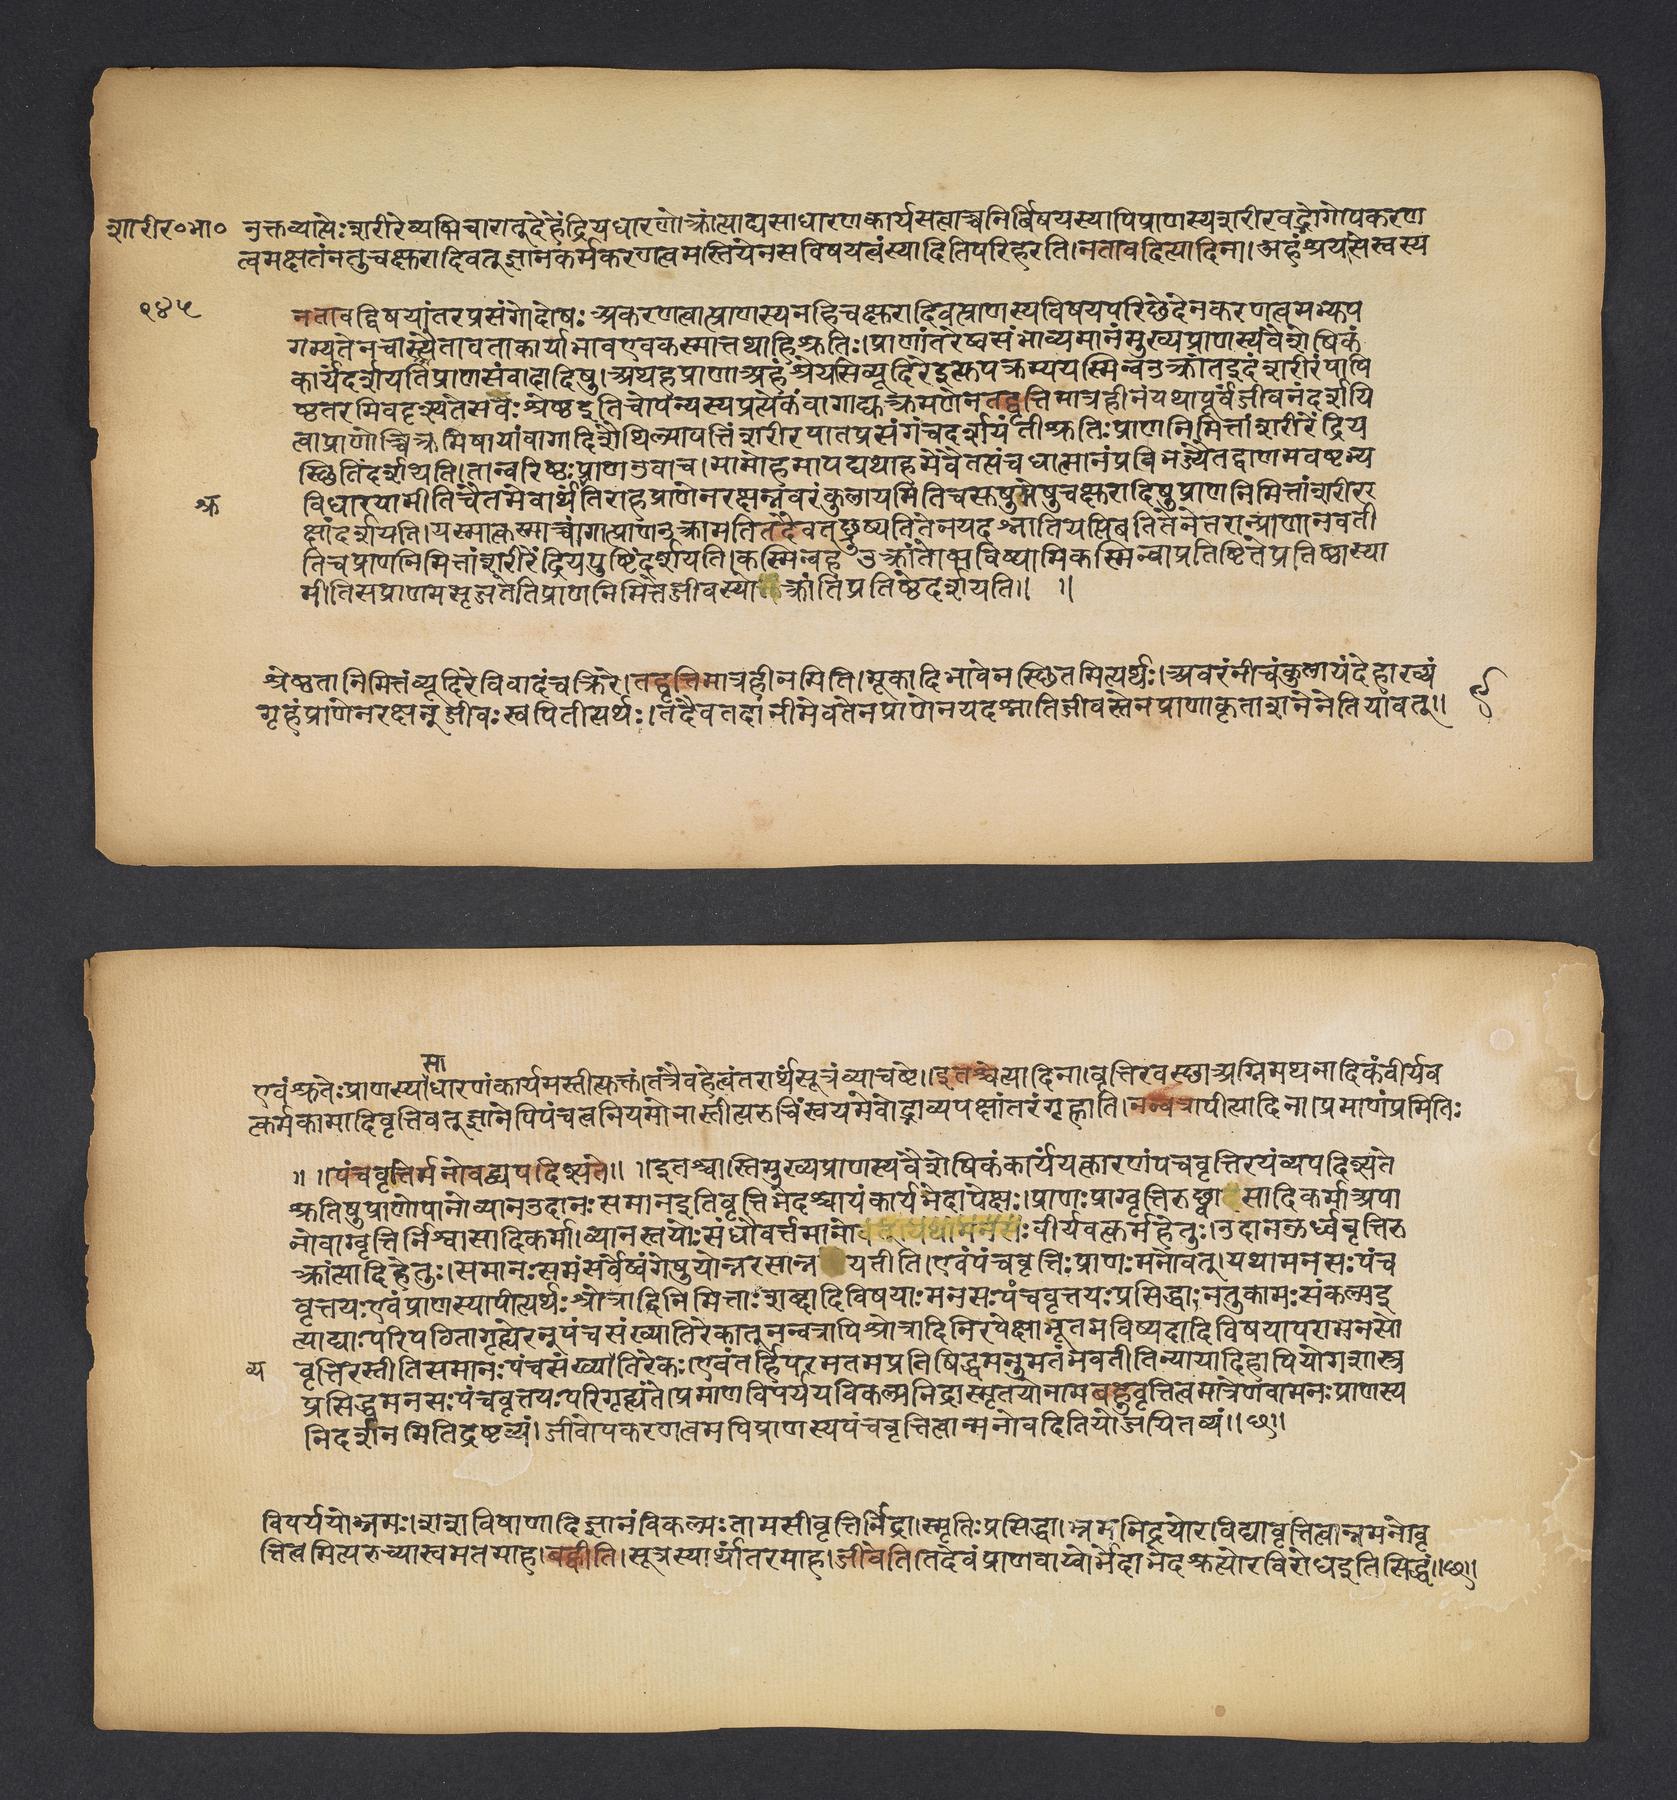 शारीर०भा० नुक्तव्याप्तेःशरीरेव्यभिचारात्तुदेहेंद्रियधारणोत्क्रांत्याद्यसाधारणकार्यसत्वाच्चनिर्विषयस्यापिप्राणस्यशरीरवद्भोगोपकरण
त्वमक्षतंनतुचक्षुरादिवत्तुज्ञानकर्मकरणत्वमस्तियेनसविषयत्वंस्यादितिपरिहरति।नतावदित्यादिना।अहंश्रयसेस्वस्य
१४५
नतावद्विषयांतरप्रसंगोदोषःअकरणत्वात्प्राणस्यनहिचक्षुरादिवत्प्राणस्यविषयपरिछेदेनकरणत्वमभ्युप
गम्यतेनचास्यैतावताकार्याभावएवकस्मात्तथाहिश्रुतिः।प्राणांतरेष्वसंभाव्यमानंमुख्यप्राणस्यवैशेषिकं
कार्यंदर्शयतिप्राणसंवादादिषु।अथहप्राणाअहंश्रेयसिव्यूदिरेइत्युपक्रम्ययस्मिन्वउत्क्रांतइदंशरीरंपापि
ष्ठतरमिवदृश्यतेसवःश्रेष्ठइतिचोपन्यस्यप्रत्येकंवागाद्युत्क्रमणेनतद्वृत्तिमात्रहीनंयथापूर्वंजीवनंदर्शयि
त्वाप्राणोच्चिक्रमिषायांवागादिशैथिल्यापत्तिंशरीरपातप्रसंगंचदर्शयंतीश्रुतिःप्राणनिमित्तांशरीरेंद्रिय
स्थितिंदर्शयति।तान्वरिष्ठःप्राणउवाच।मामोहमापद्यथाहमेवैतत्पंचधात्मानंप्रविभज्यैतद्बाणमवष्टभ्य
श्रु
विधारयामीतिचैतमेवार्थंतिराहप्राणेनरक्षन्नंवरंकुलायमितिचसुप्तेषुचक्षुरादिषुप्राणनिमित्तांशरीरर
क्षांदर्शयति।यस्मात्कस्माच्चांगात्प्राणउत्क्रामतितदेवतच्छुष्यतितेनयदश्नातियत्पिबतितेनेतरान्प्राणानवती
तिचप्राणनिमित्तांशरीरेंद्रियपुष्टिंदर्शयति।कस्मिन्वहंउत्क्रांतेभविष्यामिकस्मिन्वाप्रतिष्ठितेप्रतिष्ठास्या
मीतिसप्राणमसृजतेतिप्राणनिमित्तेजीवस्योत्क्रांतिप्रतिष्ठेदर्शयति॥ ॥
श्रेष्ठतानिमित्तंव्यूदिरेविवादंचक्रिरे।तद्वृत्तिमात्रहीनमिति।मूकादिभावेनस्थितमित्यर्थः।अवरंनीचंकुलायंदेहाख्यं
गृहंप्राणेनरक्षन्जीवःस्वपितीत्यर्थः।तदैवतदानीमेवतेनप्राणेनयदश्नातिजीवस्तेनप्राणाकृताशनेनेतियावत्॥
सा
एवंश्रुतेःप्राणस्याधारणंकार्यमस्तीत्युक्तं।तत्रैवहेत्वंतरार्थंसूत्रंव्याचष्टे॥इतश्चेत्यादिना।वृत्तिरवस्थाअग्निमथनादिकंवीर्यव
त्कर्मकामादिवृत्तिवत्तुज्ञानेपिपंचत्वनियमोनास्तीत्यरुचिंस्वयमेवोद्भाव्यपक्षांतरंगृह्णाति।नन्वत्रापीत्यादिना।प्रमाणंप्रमितिः
॥ ॥पंचवृत्तिर्मनोवद्व्यपदिश्यते॥ ॥इतश्चास्तिमुख्यप्राणस्यवैशेषिकंकार्यंयत्कारणंपंचवृत्तिरयंव्यपदिश्यते
श्रुतिषुप्राणोपानोव्यानउदानःसमानइतिवृत्तिभेदश्चायंकार्यभेदापेक्षः।प्राणःप्राग्वृत्तिरुच्छ्वासादिकर्माअपा
नोवाग्वृत्तिर्निश्वासादिकर्मा।व्यानस्तयोःसंधौवर्त्तमानोवीर्यवत्कर्महेतुः।उदानऊर्ध्ववृत्तिरु
त्क्रांत्यादिहेतुः।समानःसमंसर्वेष्वंगेषुयोन्नरसान्नयतीति।एवंपंचवृत्तिःप्राणःमनोवत्।यथामनसःपंच
वृत्तयःएवंप्राणस्यापीत्यर्थःश्रोत्रादिनिमित्ताःशब्दादिविषयाःमनसःपंचवृत्तयःप्रसिद्धाःनतुकामःसंकल्पइ
त्याद्याःपरिपठितागृह्येरन्पंचसंख्यातिरेकात्नन्वत्रापिश्रोत्रादिनिरपेक्षाभूतभविष्यदादिविषयापरामनसो
व्य वृत्तिरस्तीतिसमानःपंचसंख्यातिरेकः।एवंतर्हिपरमतमप्रतिषिद्धमनुमतंभवतीतिन्यायादिहापियोगशास्त्र
प्रसिद्धमनसःपंचवृत्तयःपरिगृह्यंते।प्रमाणविपर्ययविकल्पनिद्रास्मृतयोनामबहुवृत्तित्वमात्रेणवामनःप्राणस्य
निदर्शनमितिद्रष्टव्यं।जीवोपकरणत्वमपिप्राणस्यपंचवृत्तित्वान्मनोवदितियोजयितव्यं॥छ॥
विपर्ययोभ्रमः।शशविषाणादिज्ञानंविकल्पःतामसीवृत्तिर्निद्रा।स्मृतिःप्रसिद्धा।भ्रमनिद्रयोरविद्यावृत्तित्वान्नमनोवृ
त्तित्वमित्यरुच्यास्वमतमाह।बह्वीति।सूत्रस्यार्थांतरमाह।जीवेति।तदेवंप्राणवाय्वोर्भेदाभेदश्रुत्योरविरोधइतिसिद्धं॥छ॥